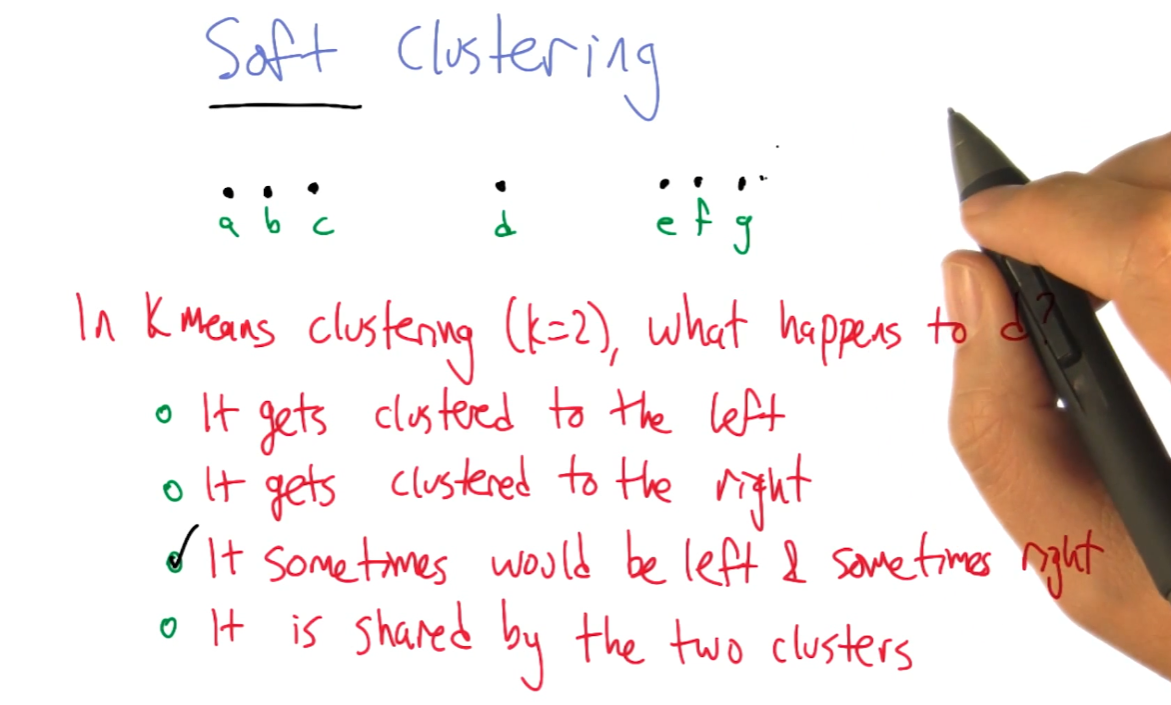 Soft Clustering
a b c d e f g
In K means clustering (k=2), what happens to d?
It gets clustered to the left
It gets clustered to the right
It sometimes would be left & sometimes right
It is shared by the two clusters